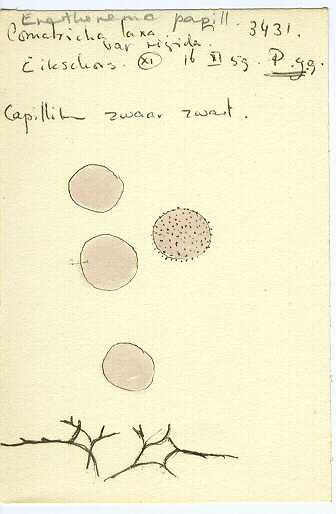 Enerthenema papill. 3431.
Comatricha laxa
var rigida.
Eikschors. XI 16 XI 59. P. gg.
Capillit. zwaar zwart.